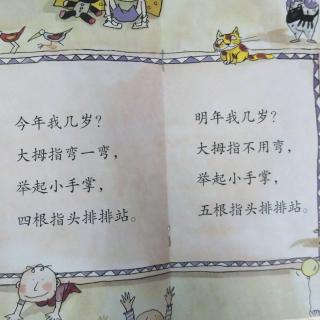 今年我几岁？
大拇指弯一弯，
举起小手掌，
四根指头排排站。
明年我几岁？
大拇指不用弯，
举起小手掌，
五根指头排排站。